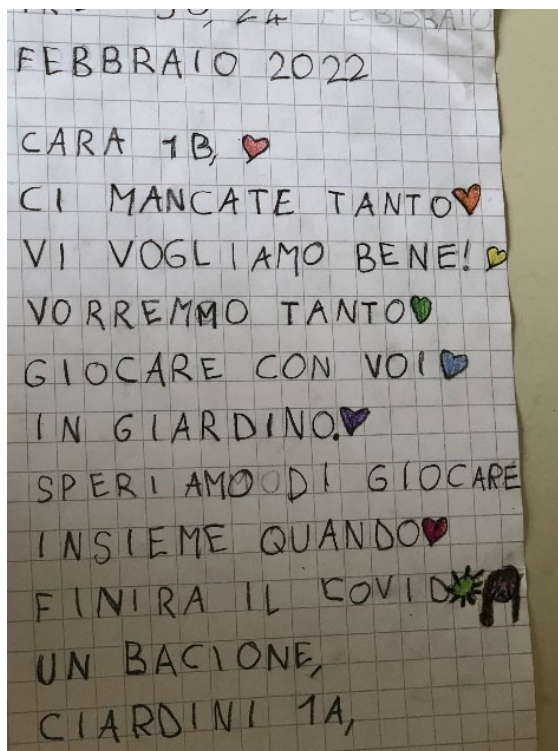 24 FEBBRAIO
FEBBRAIO 2022
CARA 1B,
CI MANCATE TANTO
VI VOGLIAMO BENE!
VORREMMO TANTO
GIOCARE CON VOI
IN GIARDINO.
SPERIAMO DI GIOCARE
INSIEME QUANDO
FINIRA IL COVID
UN BACIONE,
CIARDINI 1A,